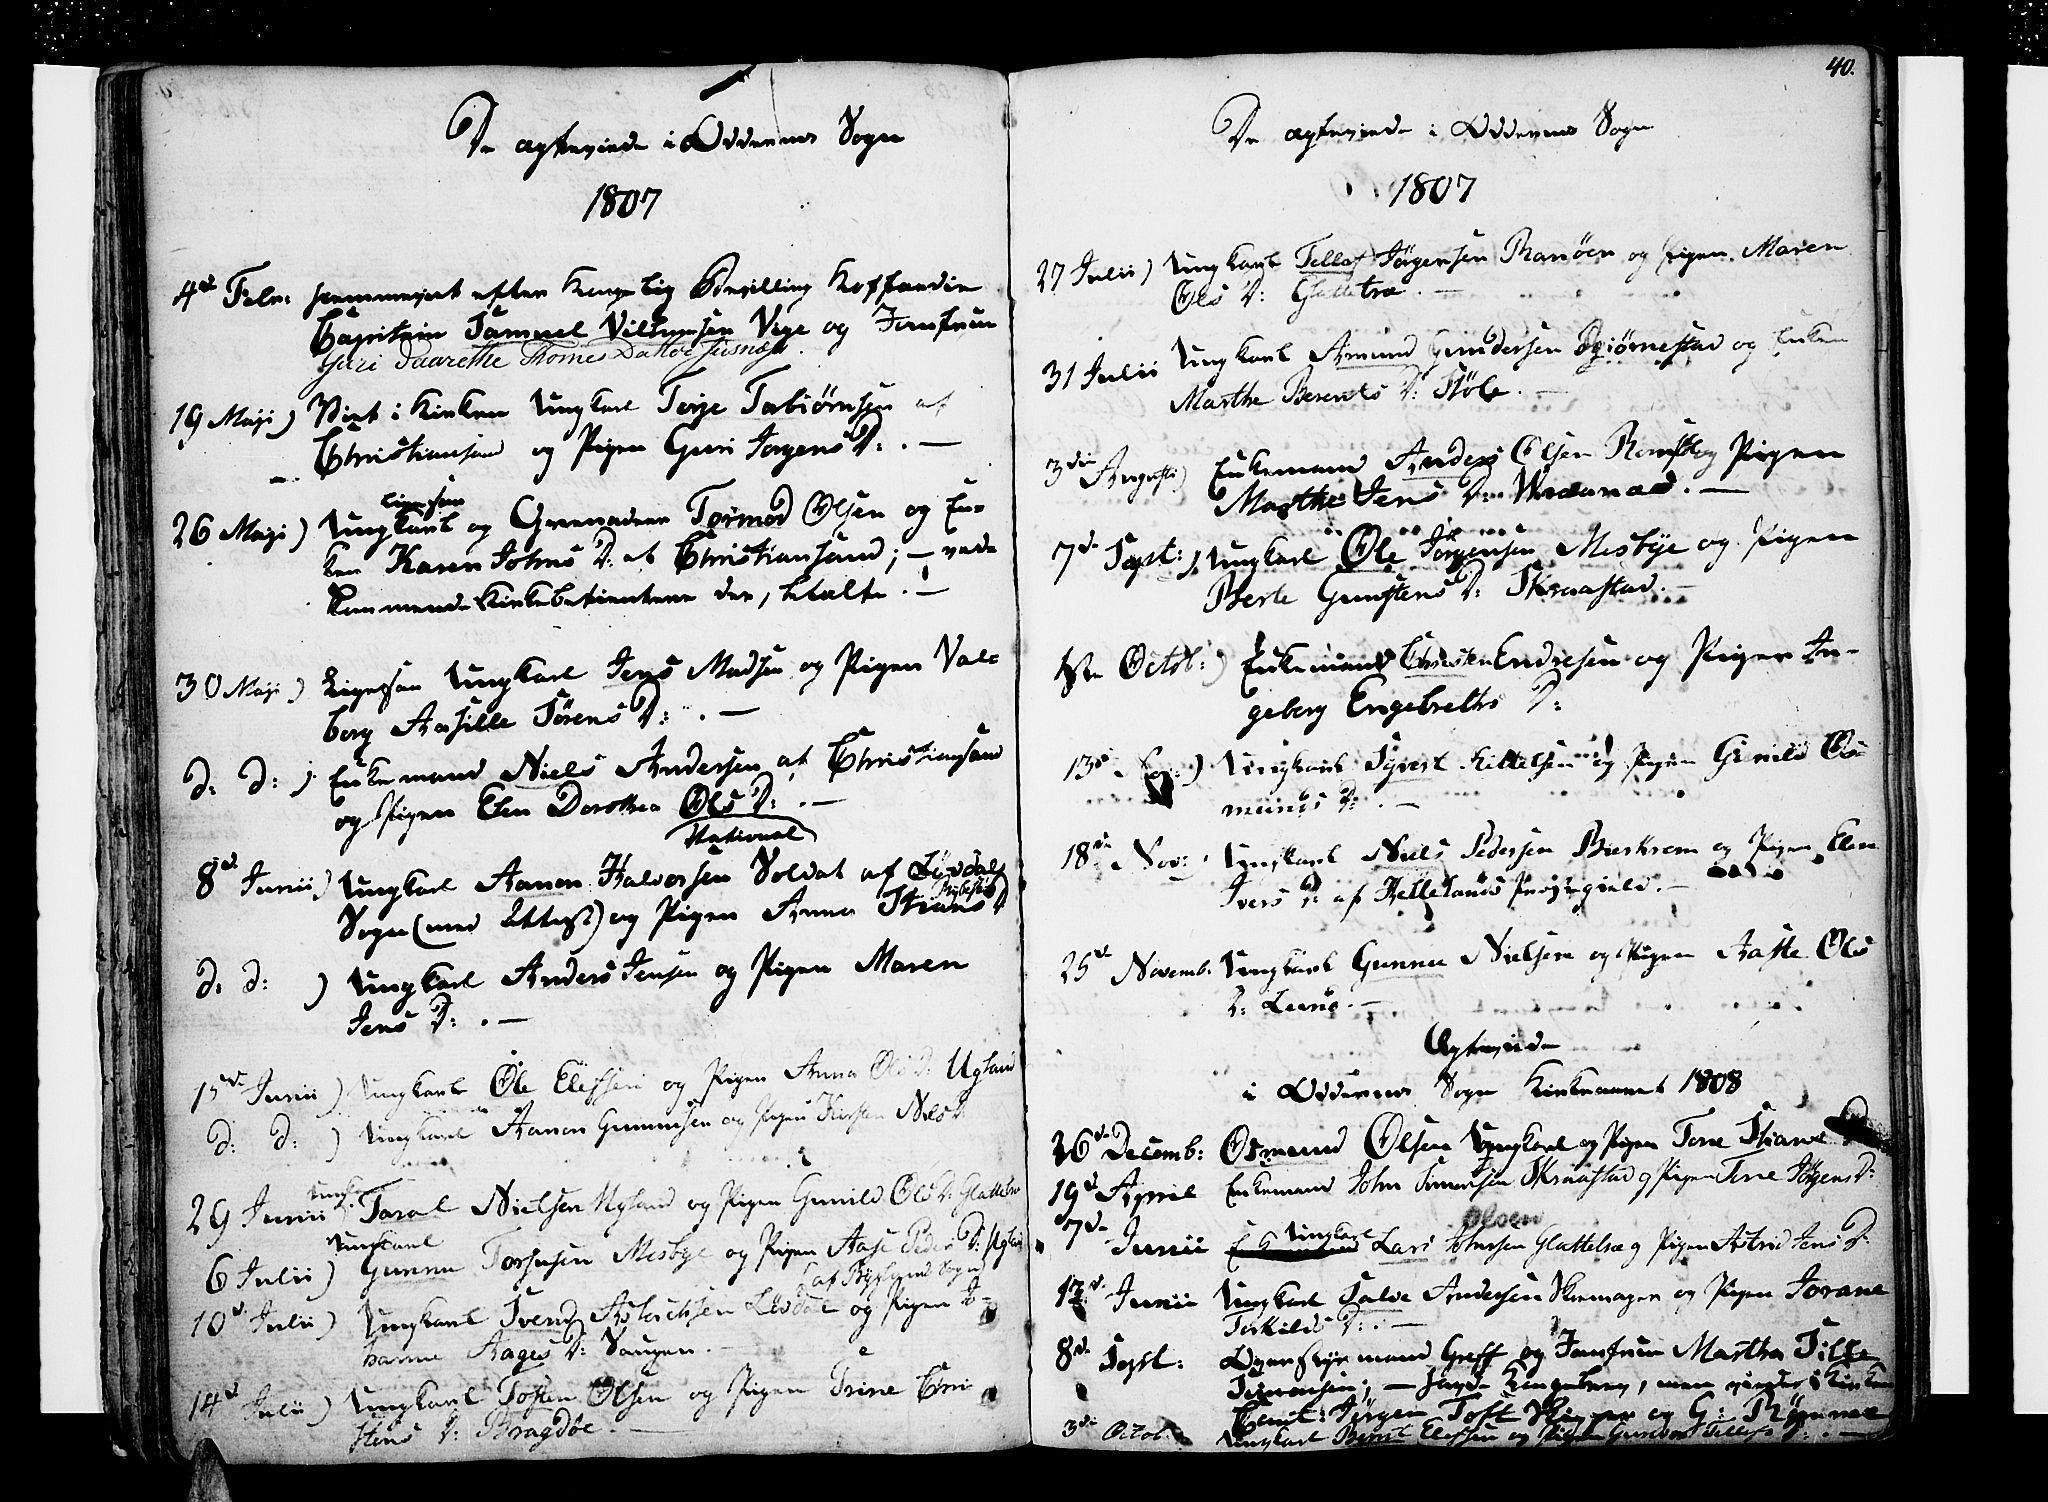 De ægteviede i Oddernes Sogn
1807
4de Febr: hiemmeviet efter Kongelig Bevilling Koffardie
Capitain Samuel Villumsen Vige og Jomfrue
Siri Daarethe Thomes Datter
19 Maji) Viet i Kirken Ungkarl Terje Tabiørnsen af
Christiansand og Pigen Guri Jørgens D: . —
ligesaa
26 Maji) Ungkarl og Grenadeer Tormod Olsen og En-
ken Karen Johns D: af Christiansand; — ved-
kommende Kirkebetientere der, betalte . —
30 Maji) Ligesaa Ungkarl Jens Madsen og Pigen Val-
borg Aasille Sørens D: . —
d: d: ) Enkemand Niels Andersen af Christiansand
og Pigen Elen Dorothea Ols D: . —
National
8de Junii) Ungkarl Aanon Halvorsen Soldat af Løvdals
Sogn (med Attest) og Pigen Anna Stians D
d: d: ) Ungkarl Anders Jensen og Pigen Maren
Jens D: . —
15de Junii) Ungkarl Ole Elefsen og Pigen Anna Ols D: Ugland
d: d: ) Ungkarl Aanon Gunnusen og Pigen Kirsten Niels D:
Ungk.
29 Junii) Taral Nielsen Ugland og Pigen Gunild Ols D: Glattetre
Ungkarl
6 Julii) Gunnu Torjusen Mesbye og Pigen Aase Peders D: Ugland
af Bygland Sogn
10de Julii) Ungkarl Svend Aslachsen Løvdal og Pigen Jo-
hanne Aages D: Vaagen. —
14de Julii) Ungkarl Tosten Olsen og Pigen Trine Chri-
stens D: Bragdøe. —
40.
De ægteviede i Oddernes Sogn
1807
27 Julii) Ungkarl Tellef Jørgensen Ranøen og Pigen Maren
Ols D: Glattetræ. —
31 Julii Ungkarl Amund Gundersen Biørnestad og Enken
Marthe Berents D: Støle. —
3die Augusti) Enkemand Anders Olsen og Pigen
Marthe Jens D: . —
7de Sept:) Ungkarl Ole Jørgensen Mesbye og Pigen
Berte Gunstens D: Skraastad. —
Octob:) Enkemand Christen Endresen og Pigen In-
geborg Engebrethts D:
13de Ungkarl Syvert Kittelsen og Pigen Gunild Os-
munds D: . —
18de Nov: Ungkarl Niels Pedersen Bierkrem og Pigen Elen
Ivers D: af Hellelands Præstegield. —
25de Novemb: Ungkarl Gunnu Nielsen og Pigen Aaste Ols
D: Lund. —
Ægteviede
i Oddernes Sogn Kirkeaaret 1808
26de Decemb: Osmund Olsen Ungkarl og Pigen Tone Stians D
19de April Enkemand John Simensen Skraastad og Pigen Tone Jørgens D:
Olsen
7de Junii Ungkarl Lars Johnsen Glattetræ og Pigen Astrid Jens D:
12de Junii Ungkarl Salve Andersen Skomager og Pigen Jorane
Terkilds D: . —
8de Sept: Overstyrmand Greff og Jomfrue Martha Sille
Simonsen; — havde Kongebrev, men viedes i Kirken
Cavit: Jørgen Toft og G: Rømme
3die Octob: Ungkarl Berent Elefsen og Pigen Gunvor Tellefs D: . —